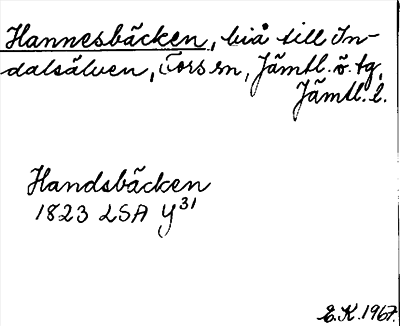 Hannesbäcken, biå till In-
dalsälven, Fors sn, Jämtl. ö. tg,
Jämtl. l.
Handsbäcken
1823 LSA Y31
E.K. 1967.